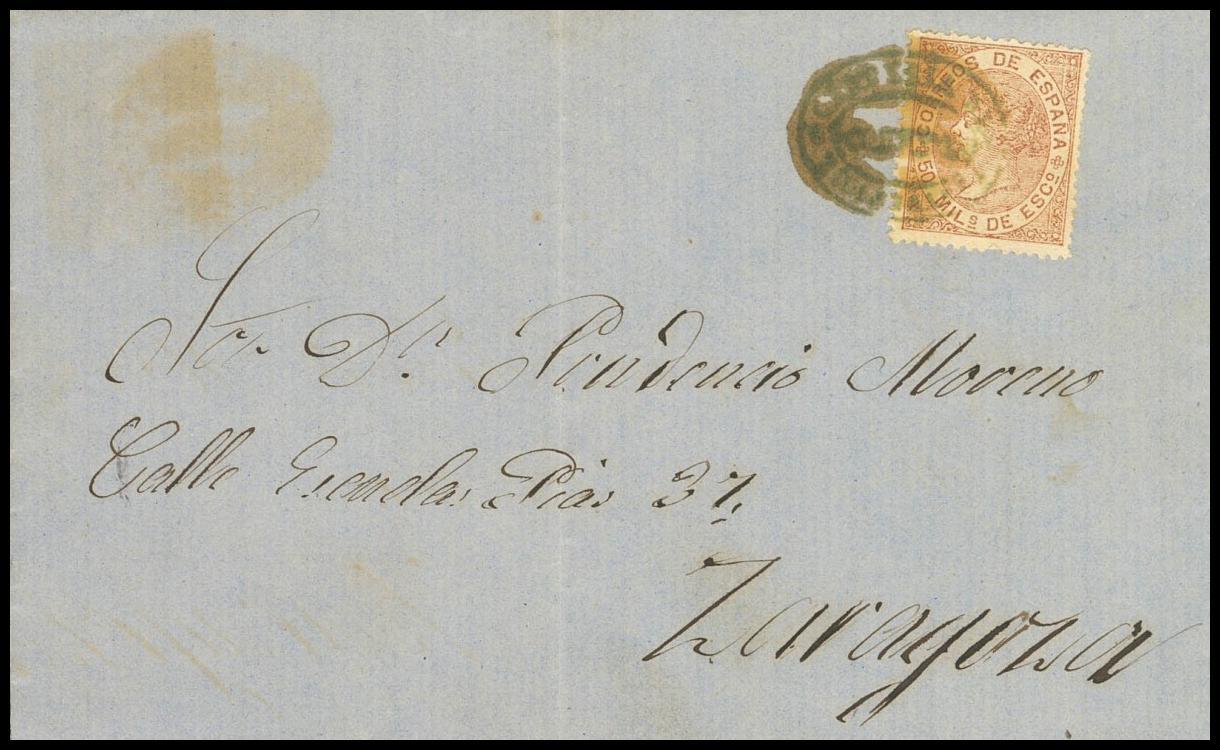 CORREOS DE ESPAÑA
50 MILS DE ESCO
Sor Dn Prudencio Moreno
Calle Escuelas Pias 37,
Zaragoza